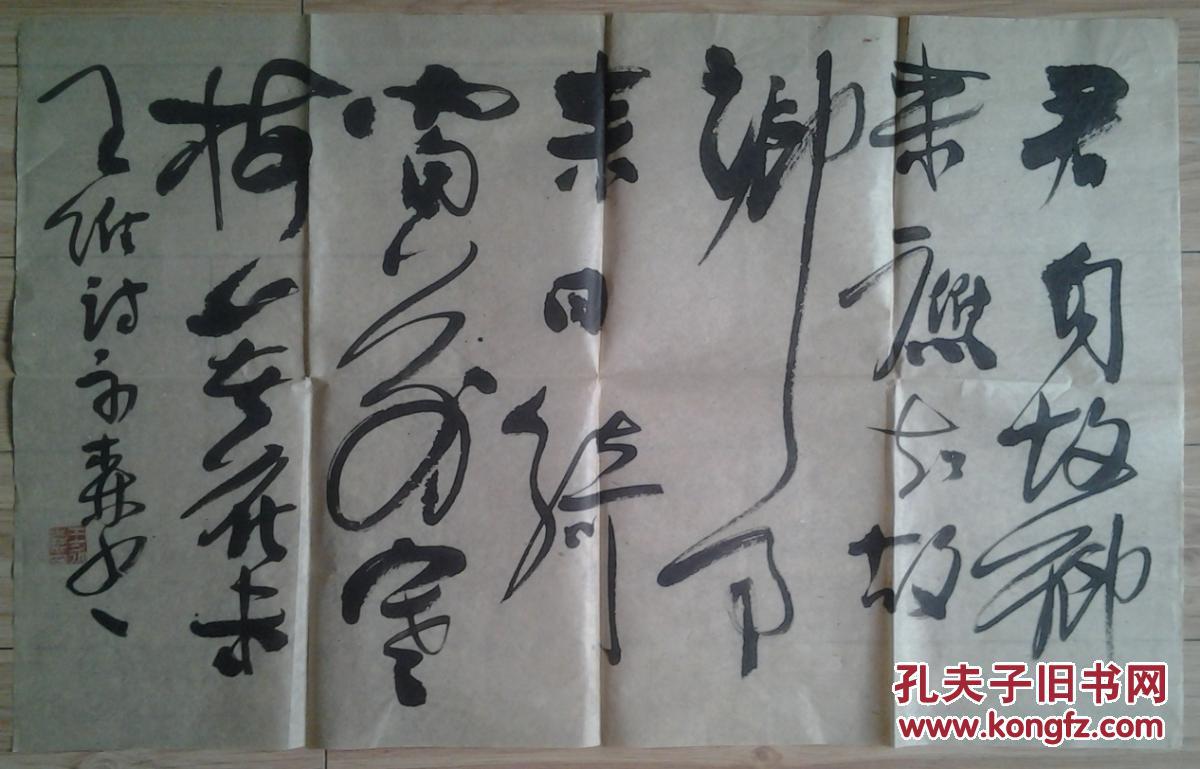 君自故鄉
来應知故
鄉事
来日綺
窗前寒
梅著花未
王維詩京森书
孔夫子旧书网
www.kongfz.com